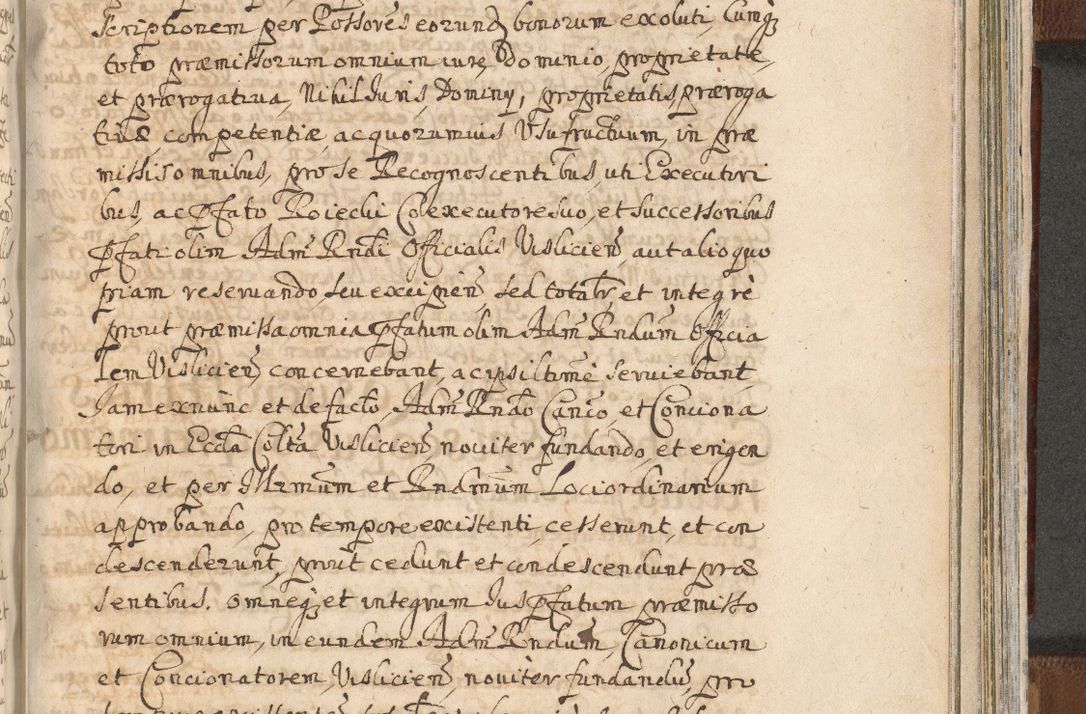 scriptionem per Possores eorund bonorum exoluti, Cumq
toto præmissorum omnium iure, Dominio, proprietate,
et prærogatiua, Nihil Iuris, Dominÿ, proprietatis, præroga
tiuæ, competentiæ, ac quorumuis Vsufructuum, in præ
missis omnibus, pro se Recognoscentibus, uti Executori
bus, ac pfato Roiecki Coexecutore suo, et successoribus
pfati olim Adm Rndi Officialis Visliciens, aut alio quo
piam reseruando seu excipien, sed totalr, et integrè
prout præmissa omnia pfatum olim Adm Rndum Officia
lem Visliciens, concernebant, ac ipsi ltimè seruiebant,
Iam ex nunc et de facto, Adm Rndo Canco, et Conciona
tori in Eccla Colta Visliciens nouiter fundando, et erigen
do, et per Illrmum et Rndmum Loci ordinarium
approbando, pro tempore existenti, cesserunt, et con
descenderunt, prout cedunt et condescendunt præ
sentibus. omneq, et integrum Ius pfatum præmisso
rum omnium, in eundem Adm Rndum, Canonicum
et Concionatorem, Visliciens, nouiter fundandu, pro